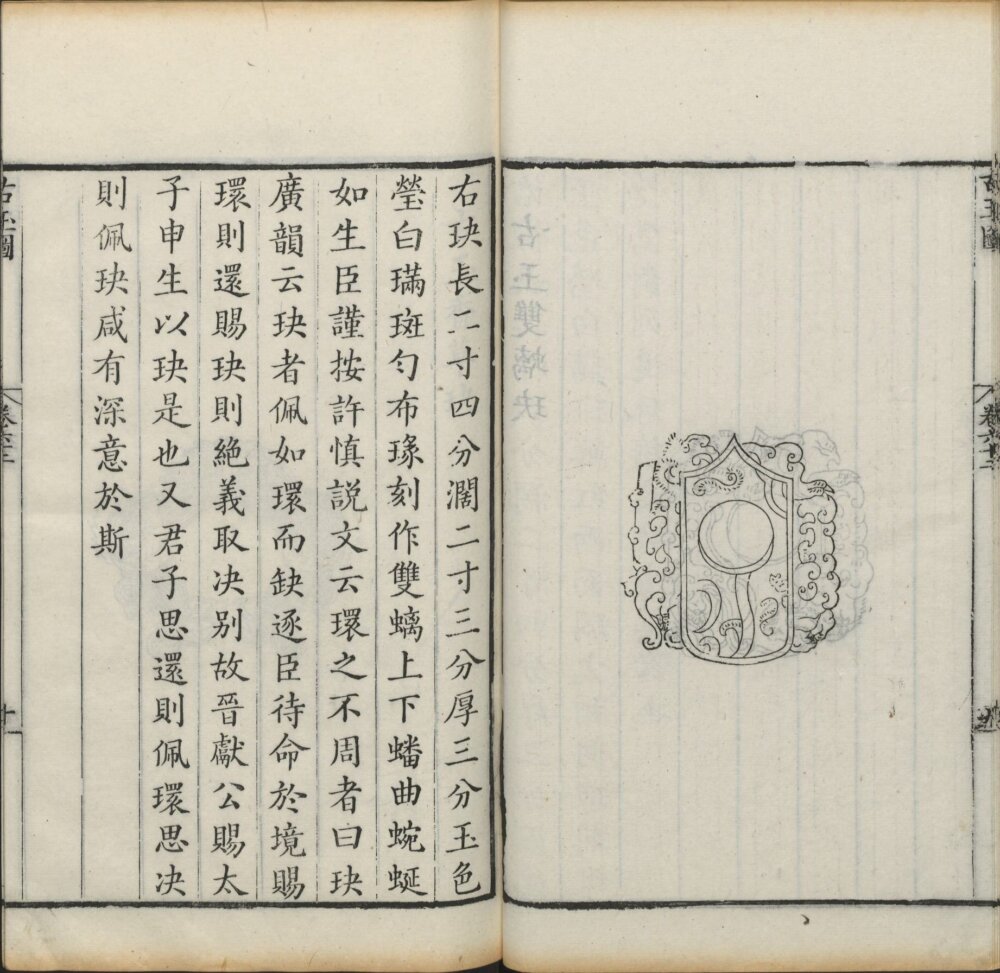 右玦長二寸四分濶二寸三分厚三分玉色
瑩白璊斑勻布瑑刻作雙螭上下蟠曲蜿蜒
如生臣謹按許慎說文云環之不周者曰玦
廣韻云玦者佩如環而缺逐臣待命於境賜
環則還賜玦則絶義取决别故晉獻公賜太
子申生以玦是也又君子思還則佩環思决
則佩玦咸有深意於斯
古玉圖